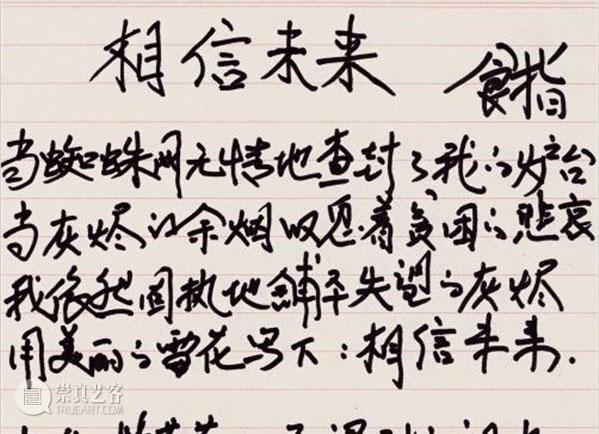 相信未来 食指
当蜘蛛网无情地查封了我的炉台
当灰烬的余烟叹息着贫困的悲哀
我依然固执地铺平失望的灰烬
用美丽的雪花写下：相信未来.
崇真艺客
TRUEART.COM